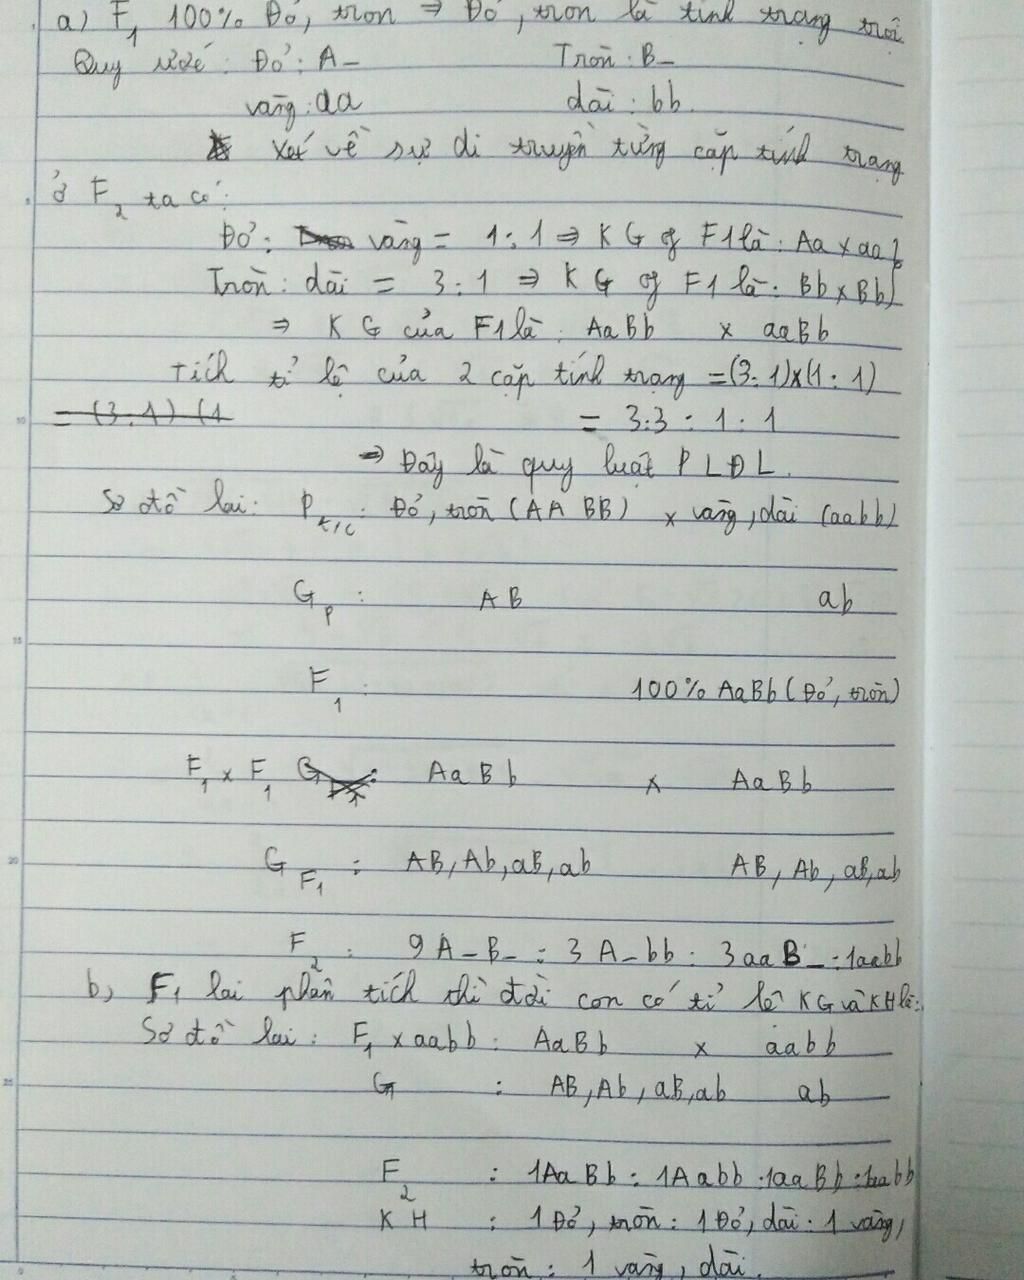 a) F1 100% Đỏ, tròn ⇒ Đỏ, tròn là tính trạng trội
Quy ước: Đỏ: A_ Tròn: B_
vàng: aa dài: bb.
Xét về sự di truyền từng cặp tính trạng
ở F2 ta có:
Đỏ: vàng = 1:1 ⇒ KG of F1 là: Aa x aa
Tròn: dài = 3:1 ⇒ KG of F1 là: Bb x Bb
⇒ KG của F1 là: AaBb x aaBb
Tích tỉ lệ của 2 cặp tính trạng = (3:1)x(1:1)
= (3:1) (1 = 3:3:1:1
⇒ Đây là quy luật PLĐL.
Sơ đồ lai: Pt/c: Đỏ, tròn (AABB) x vàng, dài (aabb)
GP: AB ab
F1: 100% AaBb (Đỏ, tròn)
F1 x F1 G : AaBb x AaBb
GF1: AB, Ab, aB, ab AB, Ab, aB, ab
F2: 9 A_B_ : 3 A_bb : 3 aaB_ : 1aabb
b, F1 lai phân tích thì đời con có tỉ lệ KG và KH là:
Sơ đồ lai: F1 x aabb: AaBb x aabb
G : AB, Ab, aB, ab ab
F2 : 1AaBb : 1Aabb : 1aaBb : 1aabb
KH : 1 Đỏ, tròn : 1 Đỏ, dài : 1 vàng,
tròn : 1 vàng, dài.